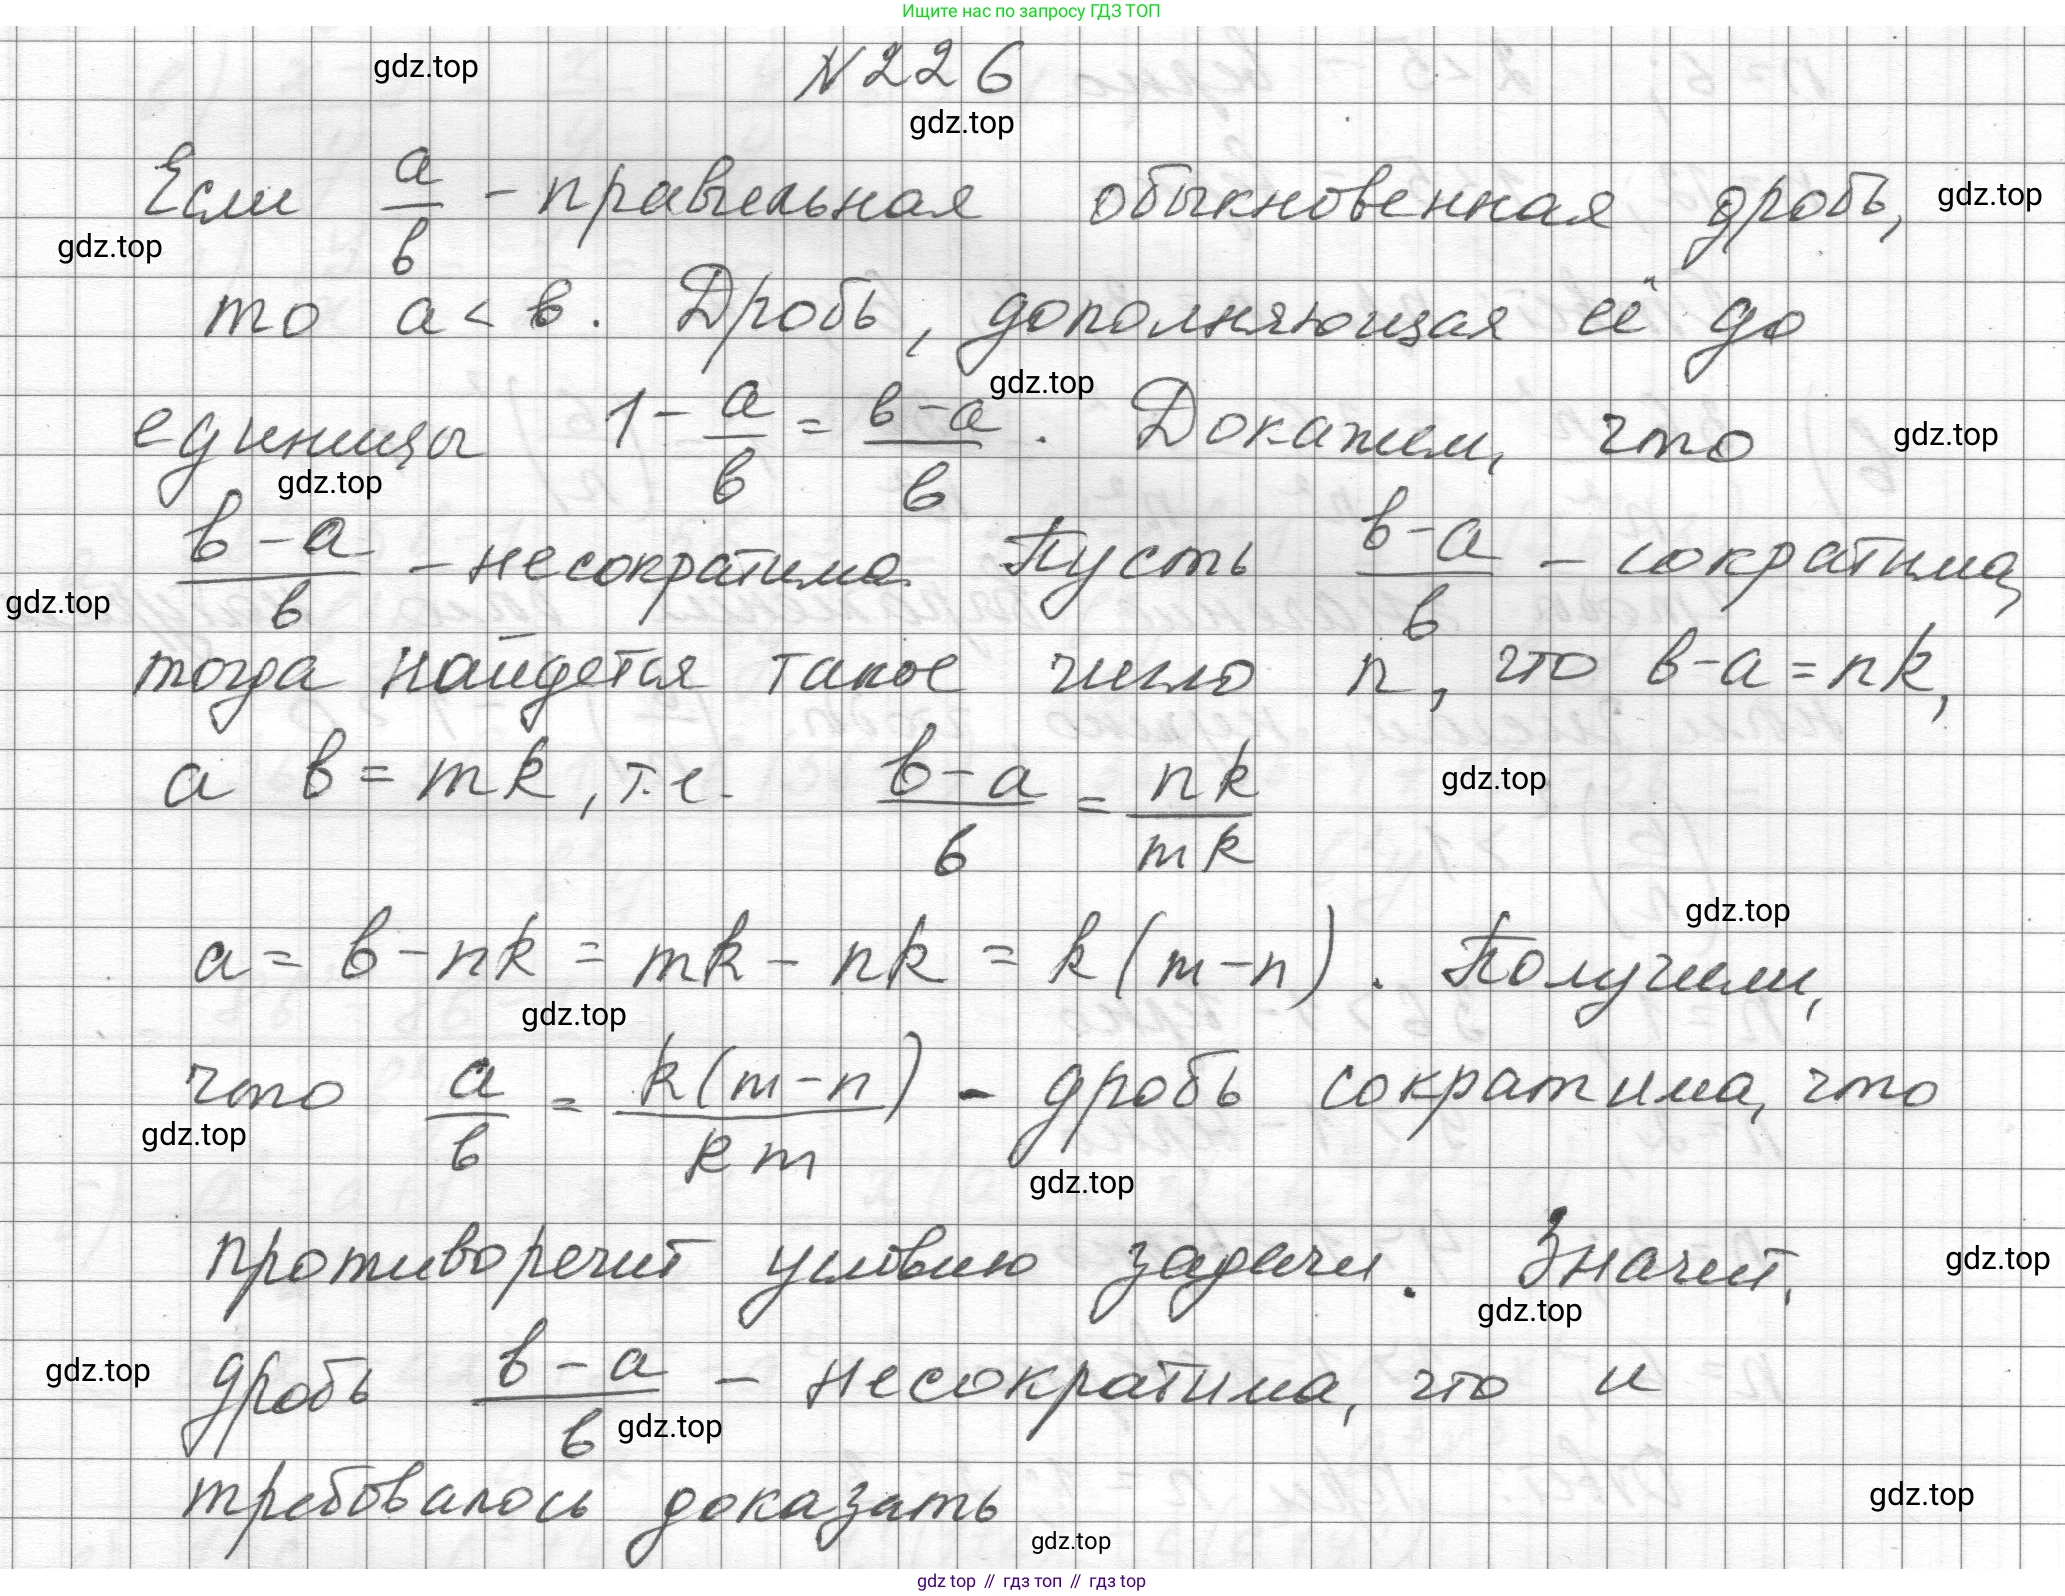 Ищите нас по запросу ГДЗ ТОП
gdz.top
N 226
gdz.top
Если a/b - правильная обыкновенная дробь,
gdz.top
gdz.top
то a < b. Дробь, дополняющая её до
gdz.top
единицы 1 - a/b = b-a/b. Докажем, что
gdz.top
gdz.top
b-a/b - несократима. Пусть b-a/b - сократима,
gdz.top
тогда найдется такое число n, что b-a=nk,
а b=mk, т.е. b-a/b = nk/mk
gdz.top
gdz.top
a = b-nk = mk - nk = k(m-n). Получили,
gdz.top
что a/b = k(m-n)/km - дробь сократима, что
gdz.top
gdz.top
противоречит условию задачи. Значит,
gdz.top
gdz.top
дробь b-a/b - несократима, что и
gdz.top
gdz.top
требовалось доказать
gdz.top
gdz.top
gdz top // гдз топ // гдз top